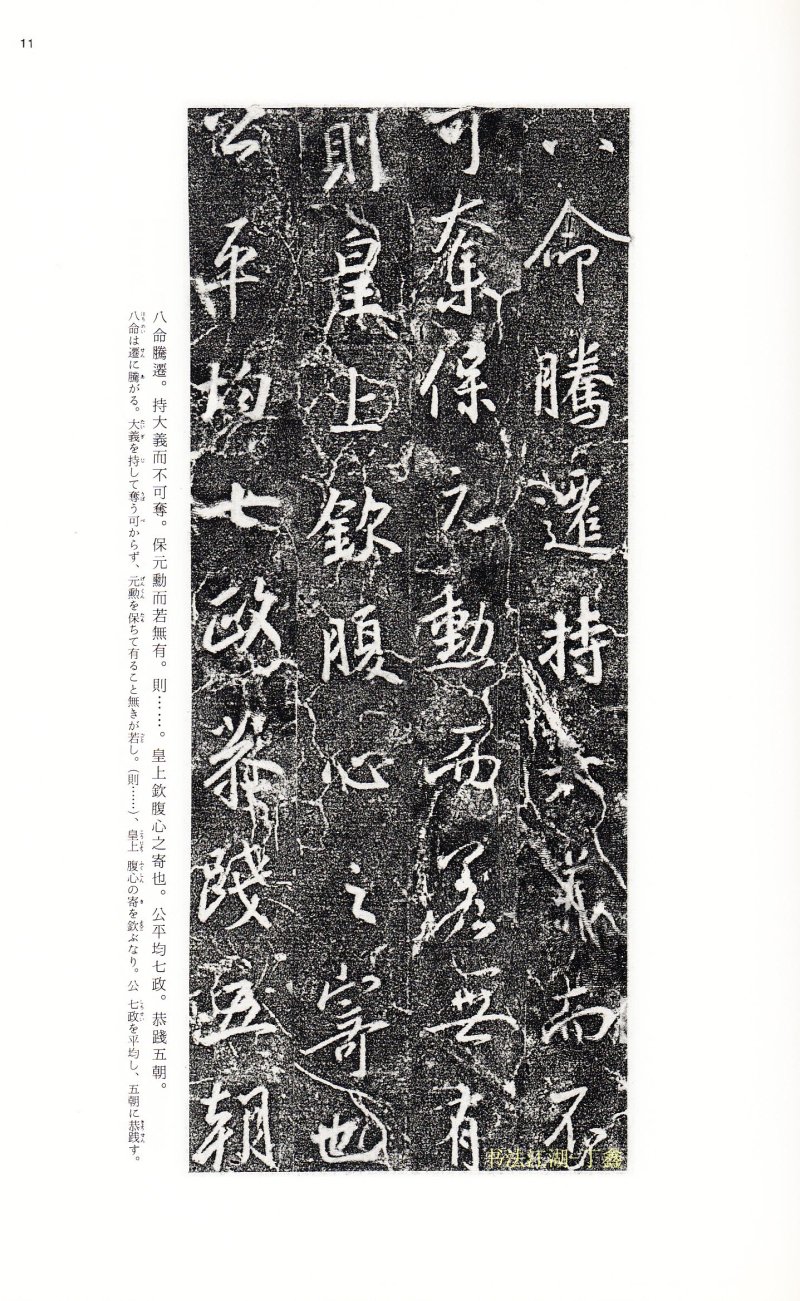 11
八命騰遷持大義而不
可奪保元勳而若無有
則皇上欽腹心之寄也
公平均七政恭踐五朝
八命騰遷。持大義而不可奪。保元勳而若無有。則……。皇上欽腹心之寄也。公平均七政。恭踐五朝。
八命は遷に騰がる。大義を持して奪う可からず、元勲を保ちて有ること無きが若し。(則……)、皇上 腹心の寄を欽ぶなり。公 七政を平均し、五朝に恭践す。
书法江湖 丁鑫